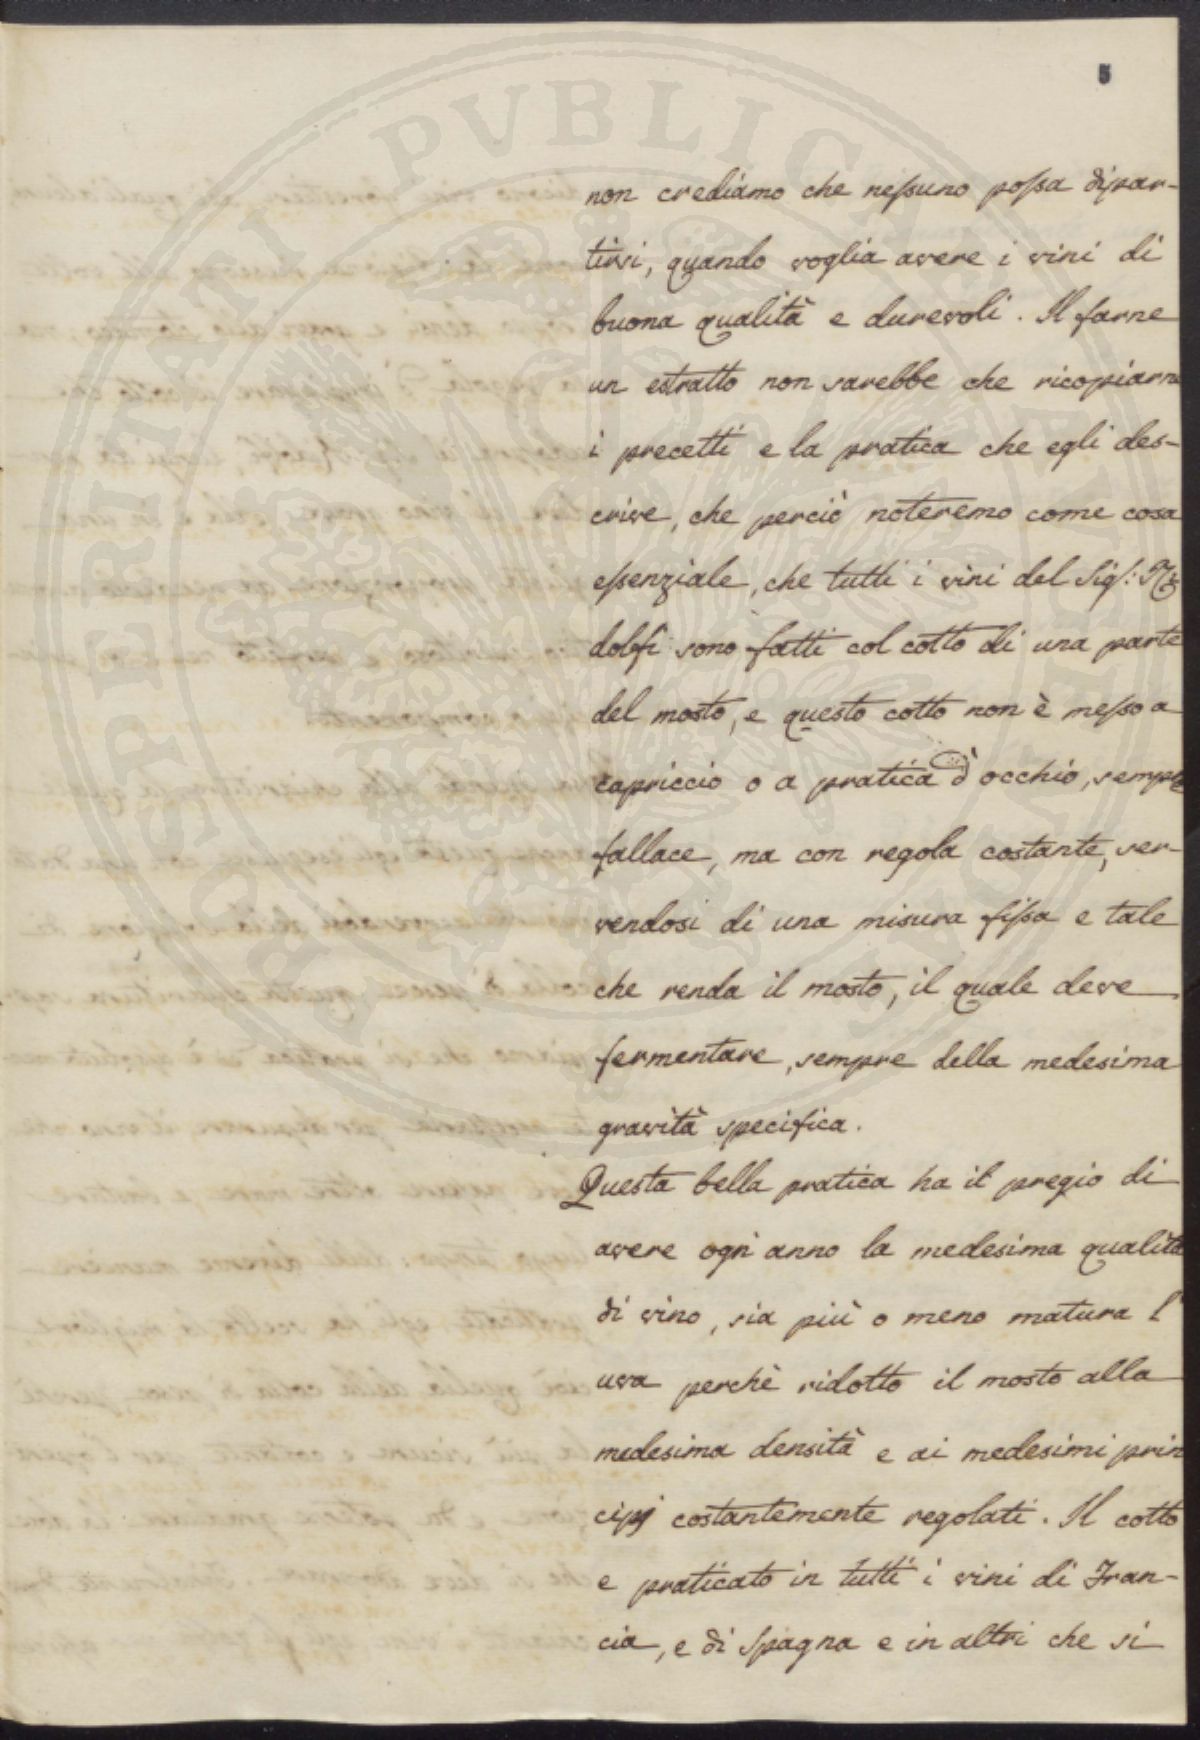 PROSPERITATI PVBLICAE AVGENDAE
5
non crediamo che neſsuno poſsa dipar-
tirsi, quando voglia avere i vini di
buona qualità e durevoli. Il farne
un estratto non sarebbe che ricopiarne
i precetti e la pratica che egli des-
crive, che perciò noteremo come cosa
eſsenziale, che tutti i vini del Sig.:
dolfi sono fatti col cotto di una parte
del mosto, e questo cotto non è meſso a
capriccio o a pratica d'occhio, sempre
fallace, ma con regola costante, ser-
vendosi di una misura fiſsa e tale
che renda il mosto, il quale deve
fermentare, sempre della medesima
gravità specifica.
Questa bella pratica ha il pregio di
avere ogni anno la medesima qualità
di vino, sia più o meno matura l'
uva perchè ridotto il mosto alla
medesima densità e ai medesimi prin
cipj costantemente regolati. Il cotto
e praticato in tutti i vini di Fran-
cia, e di Spagna e in altri che si